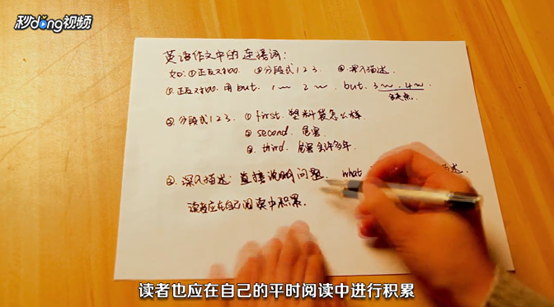 秒dǒng视频
英语作文中的连接词:
如:①正反对加. ②分段式123. ③深入描述.
①正反对加. 用but. 1~ 2~ but. 3~. 4~
②分段式123. ①first. 塑料袋怎么样
②second. 危害
③third. 危害
③.深入描述: 直接说明问题. what
读者应在自己阅读中积累.
读者也应在自己的平时阅读中进行积累